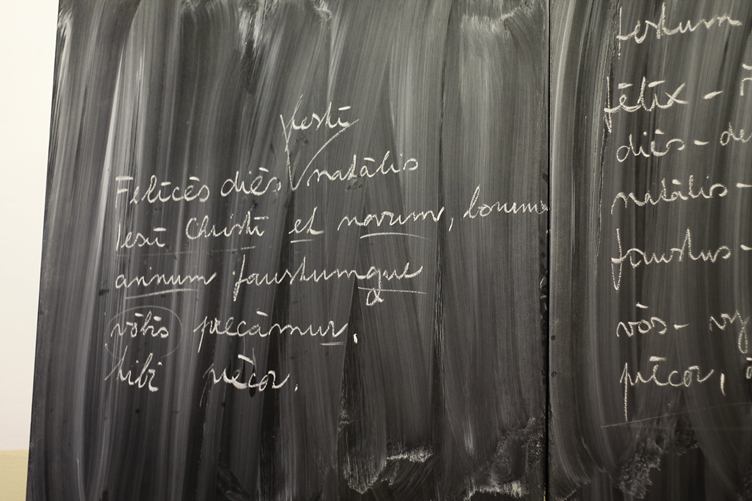 festī
Fēlīcēs diēs nātālis
Iesū Christī et novum, bonum
annum faustumque
vōbīs precāmur,
tibī precor.
festum
fēlīx -
diēs - de
nātālis -
faustus -
vōs -
precor,